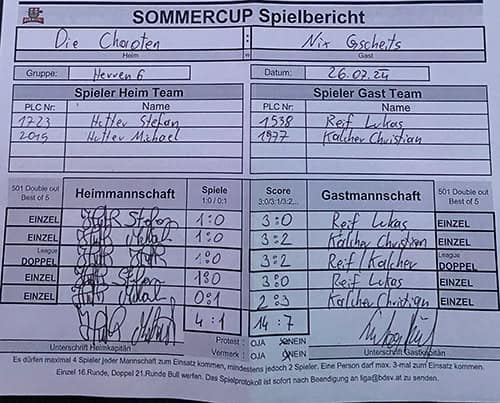 SOMMERCUP Spielbericht
Die Chaoten : Nix Gscheits
Heim Gast
Gruppe: Herren 6 Datum: 26.07.24
Spieler Heim Team Spieler Gast Team
PLC Nr: Name PLC Nr: Name
1723 Hutter Stefan 1538 Reif Lukas
2015 Hutter Michael 1977 Kalcher Christian
501 Double out Best of 5 Heimmannschaft Spiele 1:0 / 0:1 Score 3:0/3:1/3:2,... Gastmannschaft 501 Double out Best of 5
EINZEL Stefan 1:0 3:0 Reif Lukas EINZEL
EINZEL 1:0 3:2 Kalcher Christian EINZEL
League DOPPEL 1:0 3:2 Reif / Kalcher League DOPPEL
EINZEL Stefan 1:0 3:0 Reif Lukas EINZEL
EINZEL 0:1 2:3 Kalcher Christian EINZEL
4:1 14:7
Protest: OJA NEIN
Vermerk: OJA NEIN
Unterschrift Heimkapitän Unterschrift Gastkapitän
Es dürfen maximal 4 Spieler jeder Mannschaft zum Einsatz kommen, mindestens jedoch 2 Spieler. Eine Person darf max. 3-mal zum Einsatz kommen.
Einzel 16.Runde, Doppel 21.Runde Bull werfen. Das Spielprotokoll ist sofort nach Beendigung an liga@bdsv.at zu senden.